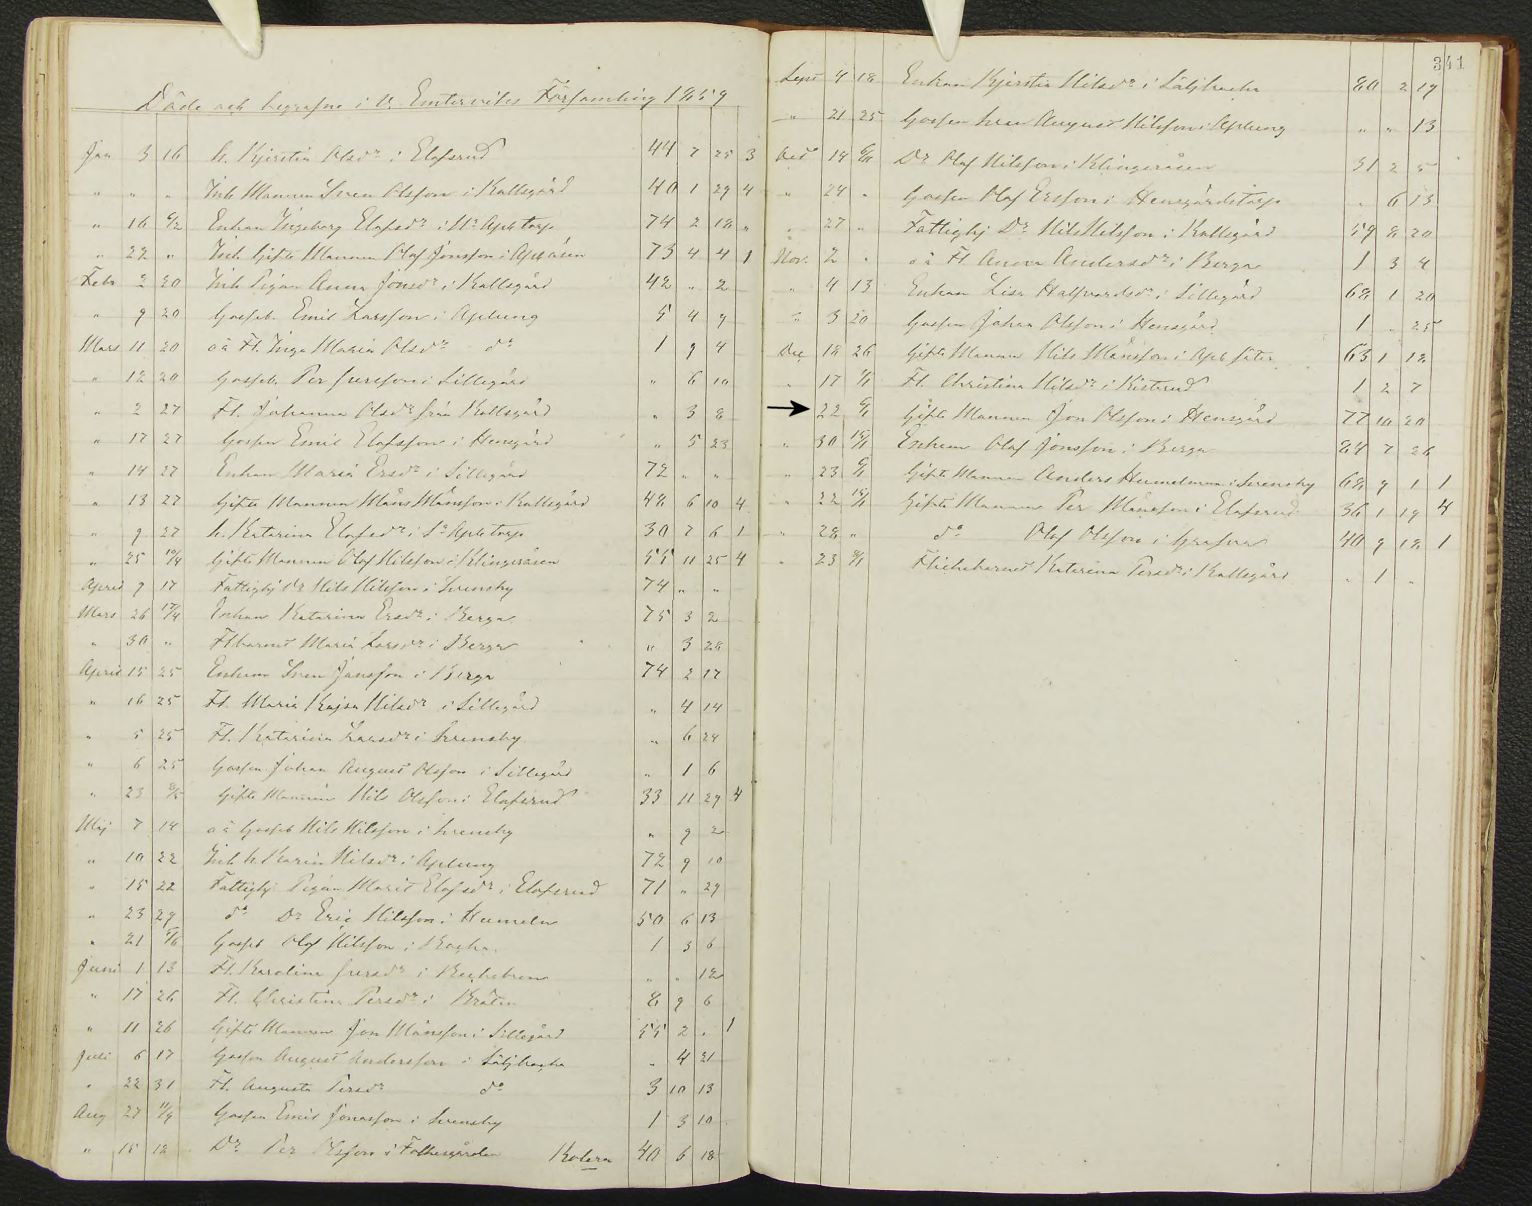 Döde och begrafne i Ö. Emterviks Församling 1859
Jan 3 16 h. Kjerstin Olsdr i Elofsrud 44 7 25 3
" " " Inh Mannen Sven Olsson i Kallsgård 40 1 29 4
" 16 6/2 Enkan Ingeborg Elofsdr i 74 2 18 "
" 22 " Inh. Gifte Mannen Olof Jonsson i 73 4 4 1
Febr 2 20 Inh Pigan Anna Jonsdr i Kallsgård 42 " 2
" 9 20 Gosseb. Emil Larsson i Aplung 5 4 9
Mars 11 20 oä Fl. Inga Maria Olsdr do 1 9 4
" 12 20 Gosseb. Per i Sillegård " 6 10
" 2 27 Fl. Johanna Olsdr från Kallsgård " 3 8
" 17 27 Gossen Emil Elofsson i Hensgård " 5 23
" 14 27 Enkan Maria Ersdr i Sillegård 72 " "
" 13 27 Gifte Mannen Måns Månsson i Kallsgård 48 6 10 4
" 9 27 h. Katarina Elofsdr i 30 7 6 1
" 25 10/4 Gifte Mannen Olof Nilsson i Klingeråsen 55 11 25 4
April 9 17 Fattighj Dr Nils Nilsson i Svensby 74 " "
Mars 26 17/4 Enkan Katarina Ersdr i Berga 75 3 2
" 30 " Flbarnet Maria Larsdr i Berga " 3 28
April 15 25 Enkem Sven Jansson i Berga 74 2 17
" 16 25 Fl. Maria Kajsa Nilsdr i Sillegård " 4 14
" 5 25 Fl. Katarina Larsdr i Svensby " 6 24
" 6 25 Gossen Johan August Olsson i Sillegård " 1 6
" 23 Gifte Mannen Nils Olsson i Elofsrud 33 11 29 4
Maj 7 14 oä Gosseb Nils Nilsson i Svensby " 9 2
" 10 22 Inh h. Karin Nilsdr i Aplung 72 9 10
" 15 22 Fattighj Pigan Marit Elofsdr i Elofsrud 71 " 29
" 23 29 do Dr Eric Nilsson i Humeln 50 6 13
" 21 5/6 Gosseb Olof Nilsson i 1 3 6
Juni 1 13 Fl. Karolina i " " 12
" 17 26 Fl. Christina Persdr i Bråten 8 9 6
" 11 26 Gifte Mannen Jon Månsson i Sillegård 55 2 " 1
Juli 6 17 Gossen August Andersson i Säljbacka " 4 21
" 22 31 Fl. Augusta Persdr do 3 10 13
Aug 27 11/9 Gossen Emil Jonasson i Svensby 1 3 10
" 15 12 Dr Per Olsson i Folkesgården Kolera 40 6 18
341
Sept 4 18 Enkan Kjerstin Nilsdr i Säljbacka 80 2 19
" 21 25 Gossen Sven August Nilsson i Aplung " " 13
Oct 14 6/11 Dr Olof Nilsson i Klingeråsen 31 2 5
" 24 " Gossen Olof Ersson i Hensgårdstorp " 6 13
" 27 " Fattighj Dr Nils Nilsson i Kallsgård 59 8 20
Nov. 2 " oä Fl. Anna Andersdr i Berga 1 3 4
" 4 13 Enkan Lisa Halfvardsdr i Sillegård 68 1 20
" 3 20 Gossen Johan Olsson i Hensgård 1 " 25
Dec 18 26 Gifte Mannen Nils Månsson i 63 1 18
" 17 1/1 Fl. Christina Nilsdr i Kisterud 1 2 7
22 6/1 Gifte Mannen Jon Olsson i Hensgård 77 10 20
" 30 15/1 Enkem Olof Jonsson i Berga 84 7 26
" 23 6/1 Gifte Mannen Anders Humelman i Svensby 68 9 1 1
" 22 15/1 Gifte Mannen Per Månsson i Elofsrud 36 1 19 4
" 28 " do Olof Olsson i 40 9 18 1
" 23 8/1 Flickebarnet Katarina Persdr i Kallsgård " 1 "